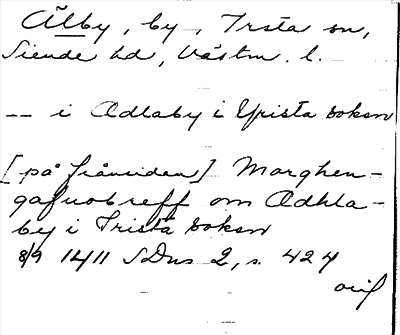 Älby, by, Irsta sn,
Siende hd, Västm. l.
-- i Adlaby i Yrista sokn
[på frånsidan] Marghen-
gafuobreff om Adhla-
by i Irista sokn
8/9 1411 SDns 2, s. 424
orig